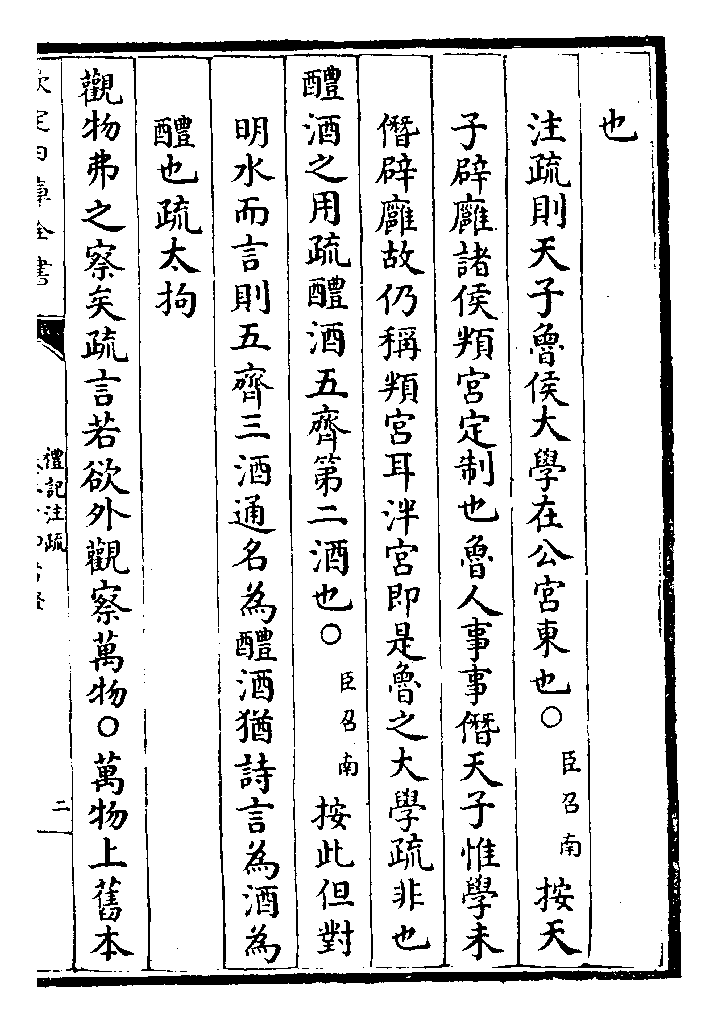 也
注疏則天子魯侯大學在公宮東也〇臣召南按天
子辟廱諸侯頖宮定制也魯人事事僭天子惟學未
僭辟廱故仍稱頖宮耳泮宮即是魯之大學疏非也
醴酒之用疏醴酒五齊第二酒也〇臣召南按此但對
明水而言則五齊三酒通名為醴酒猶詩言為酒為
醴也疏太拘
觀物弗之察矣疏言若欲外觀察萬物〇萬物上舊本
欽定四庫全書
禮記注疏
二